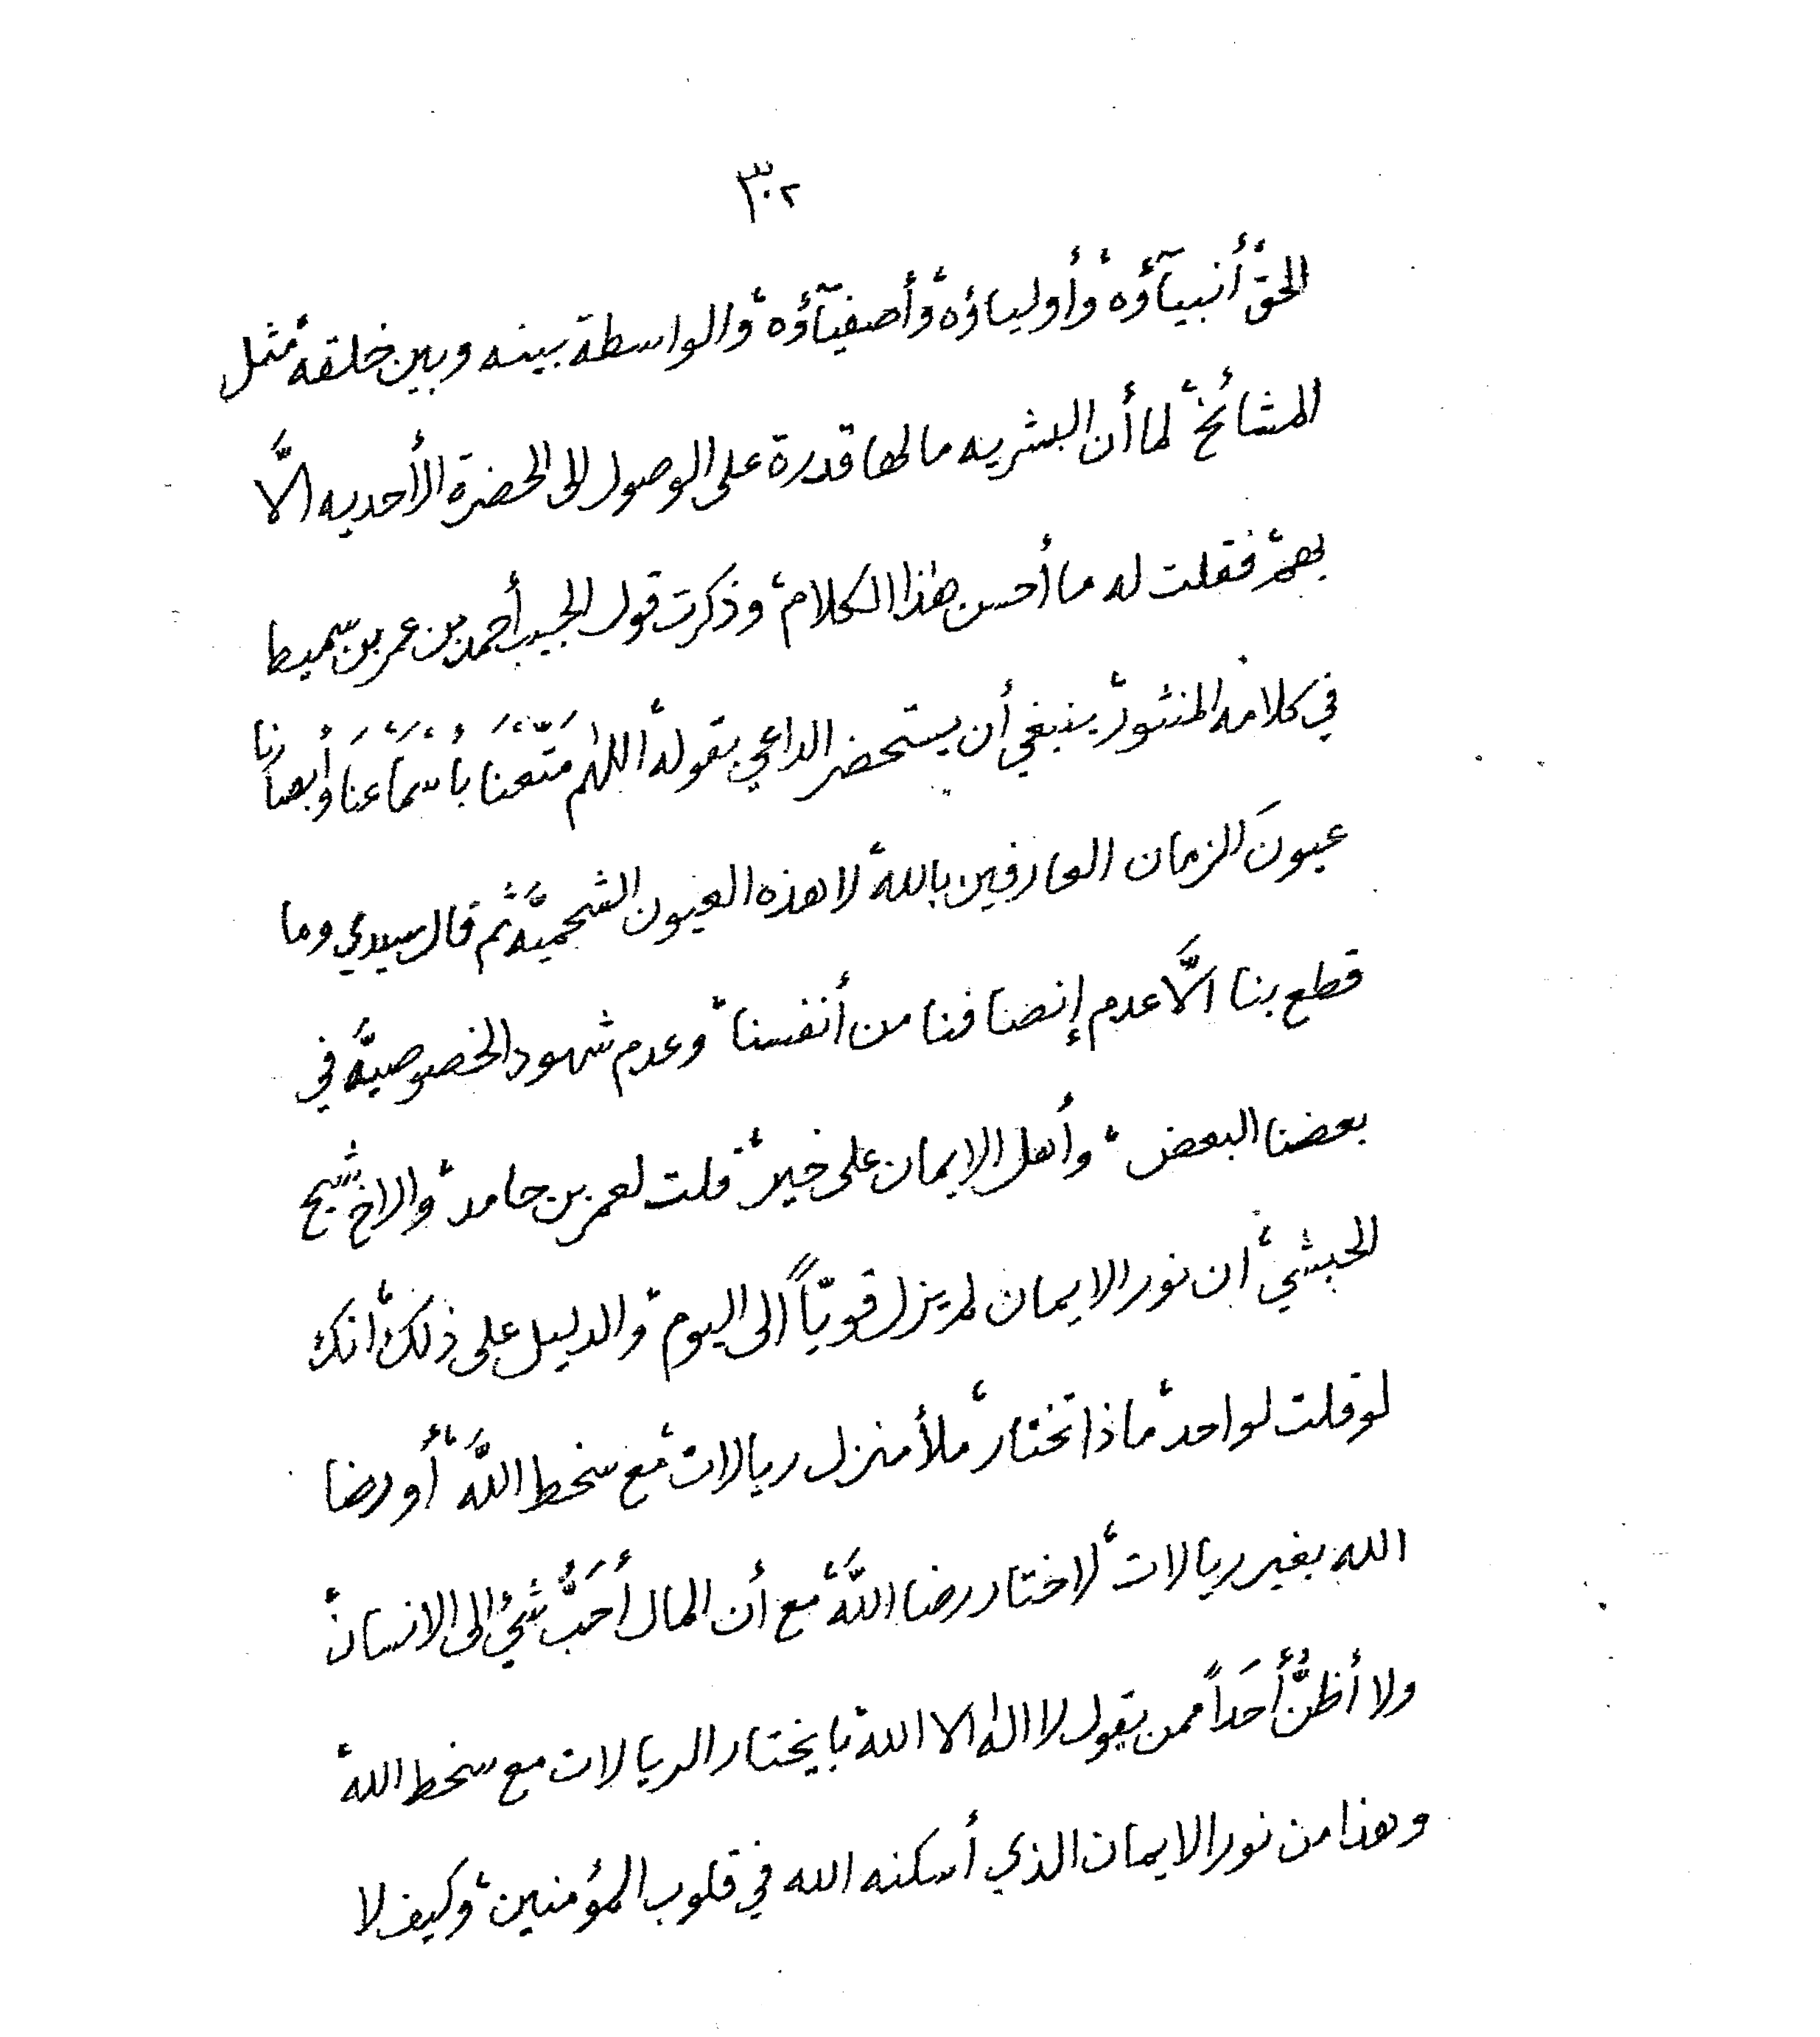 ٣٠٢
الحق، أنبيآؤه، وأولياؤه، وأصفيآؤه، والواسطة بينه وبين خلقه، مثل
المشائخ، لما أن البشريه مالها قدرة على الوصول الى الحضرة الأحديه الَّا
بهم، فقلت له ما أحسن هٰذا الكلام، وذكرت قول الحبيب أحمد بن عمر بن سميط
في كلامه المنثور، ينبغي أن يستحضر الداعي بقوله، اللهم مَتّعْنَا بأَسْمَاعَنَا وأبصارنا
عيونَ الزمان العارفين بالله، لا هذه العيون الشحميَّه، ثم قال سيدي وما
قطع بنا الَّا عدم إنصافنا من أنفسنا، وعدم شهود الخصوصيَّه في
بعضنا البعض، وأهل الايمان على خير، قلت لعمر بن حامد، والاخ شيخ
الحبشي، ان نور الايمان لم يزل قويّاً الى اليوم، والدليل على ذلك، انك
لو قلت لواحد، ماذا تختار، ملأ منزل ريالات، مع سخط اللَّه، أو رضا
الله بغير ريالات، لاختار رضا اللَّه، مع أن المال أَحَبُّ شيْ الى الانسان،
ولا أظنُّ أَحَداً ممن يقول لا اله الا الله، بايختار الريالات مع سخط الله،
وهذا من نور الايمان الذي أسكنه الله في قلوب المؤمنين، وكيف لا